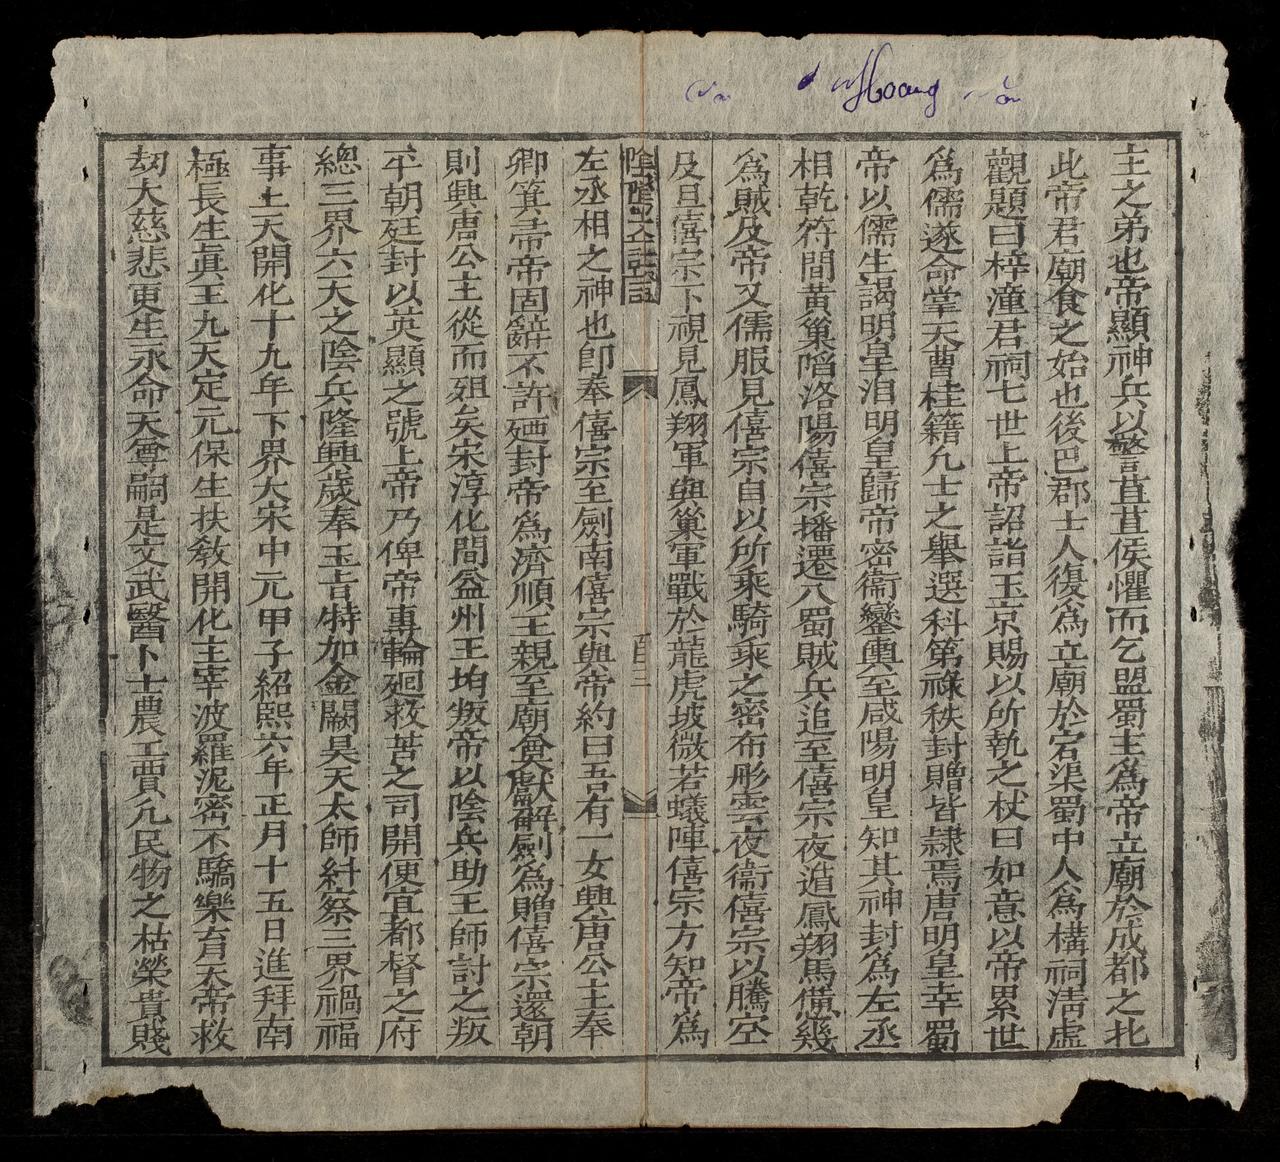 Hoang
主之弟也帝顯神兵以警苴苴侯懼而乞盟蜀主為帝立廟於成都之北
此帝君廟食之始也後巴郡士人復為立廟於宕渠蜀中人為構祠淸虛
觀題曰梓潼君祠七世上帝詔詣玉京賜以所執之杖曰如意以帝累世
為儒遂命掌天曹桂籍凡士之舉選科第祿秩封贈皆隸焉唐明皇幸蜀
帝以儒生謁明皇洎明皇歸帝密衞鑾輿至咸陽明皇知其神封為左丞
相乾符間黃巢陷洛陽僖宗播遷入蜀賊兵追至僖宗夜遁鳳翔馬憊幾
為賊及帝又儒服見僖宗自以所乘騎乘之密布彤雲夜衞僖宗以騰空
及旦僖宗下視見鳳翔軍與巢軍戰於龍虎坡微若蟻陣僖宗方知帝為
百三
左丞相之神也卽奉僖宗至劍南僖宗與帝約曰吾有一女興唐公主奉
卿箕帚帝固辭不許廼封帝為濟順王親至廟奠獻解劍為贈僖宗還朝
則興唐公主從而殂矣宋淳化間益州王均叛帝以陰兵助王師討之叛
平朝廷封以英顯之號上帝乃俾帝專輪廻救苦之司開便宜都督之府
總三界六天之陰兵隆興歲奉玉旨特加金闕昊天太師糾察三界禍福
事上天開化十九年下界大宋中元甲子紹熙六年正月十五日進拜南
極長生眞王九天定元保生扶敎開化主宰波羅泥密不驕樂育天帝救
刼大慈悲更生永命天尊嗣是文武醫卜士農工賈凡民物之枯榮貴賤